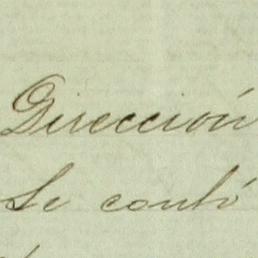 Dirección
Se contó